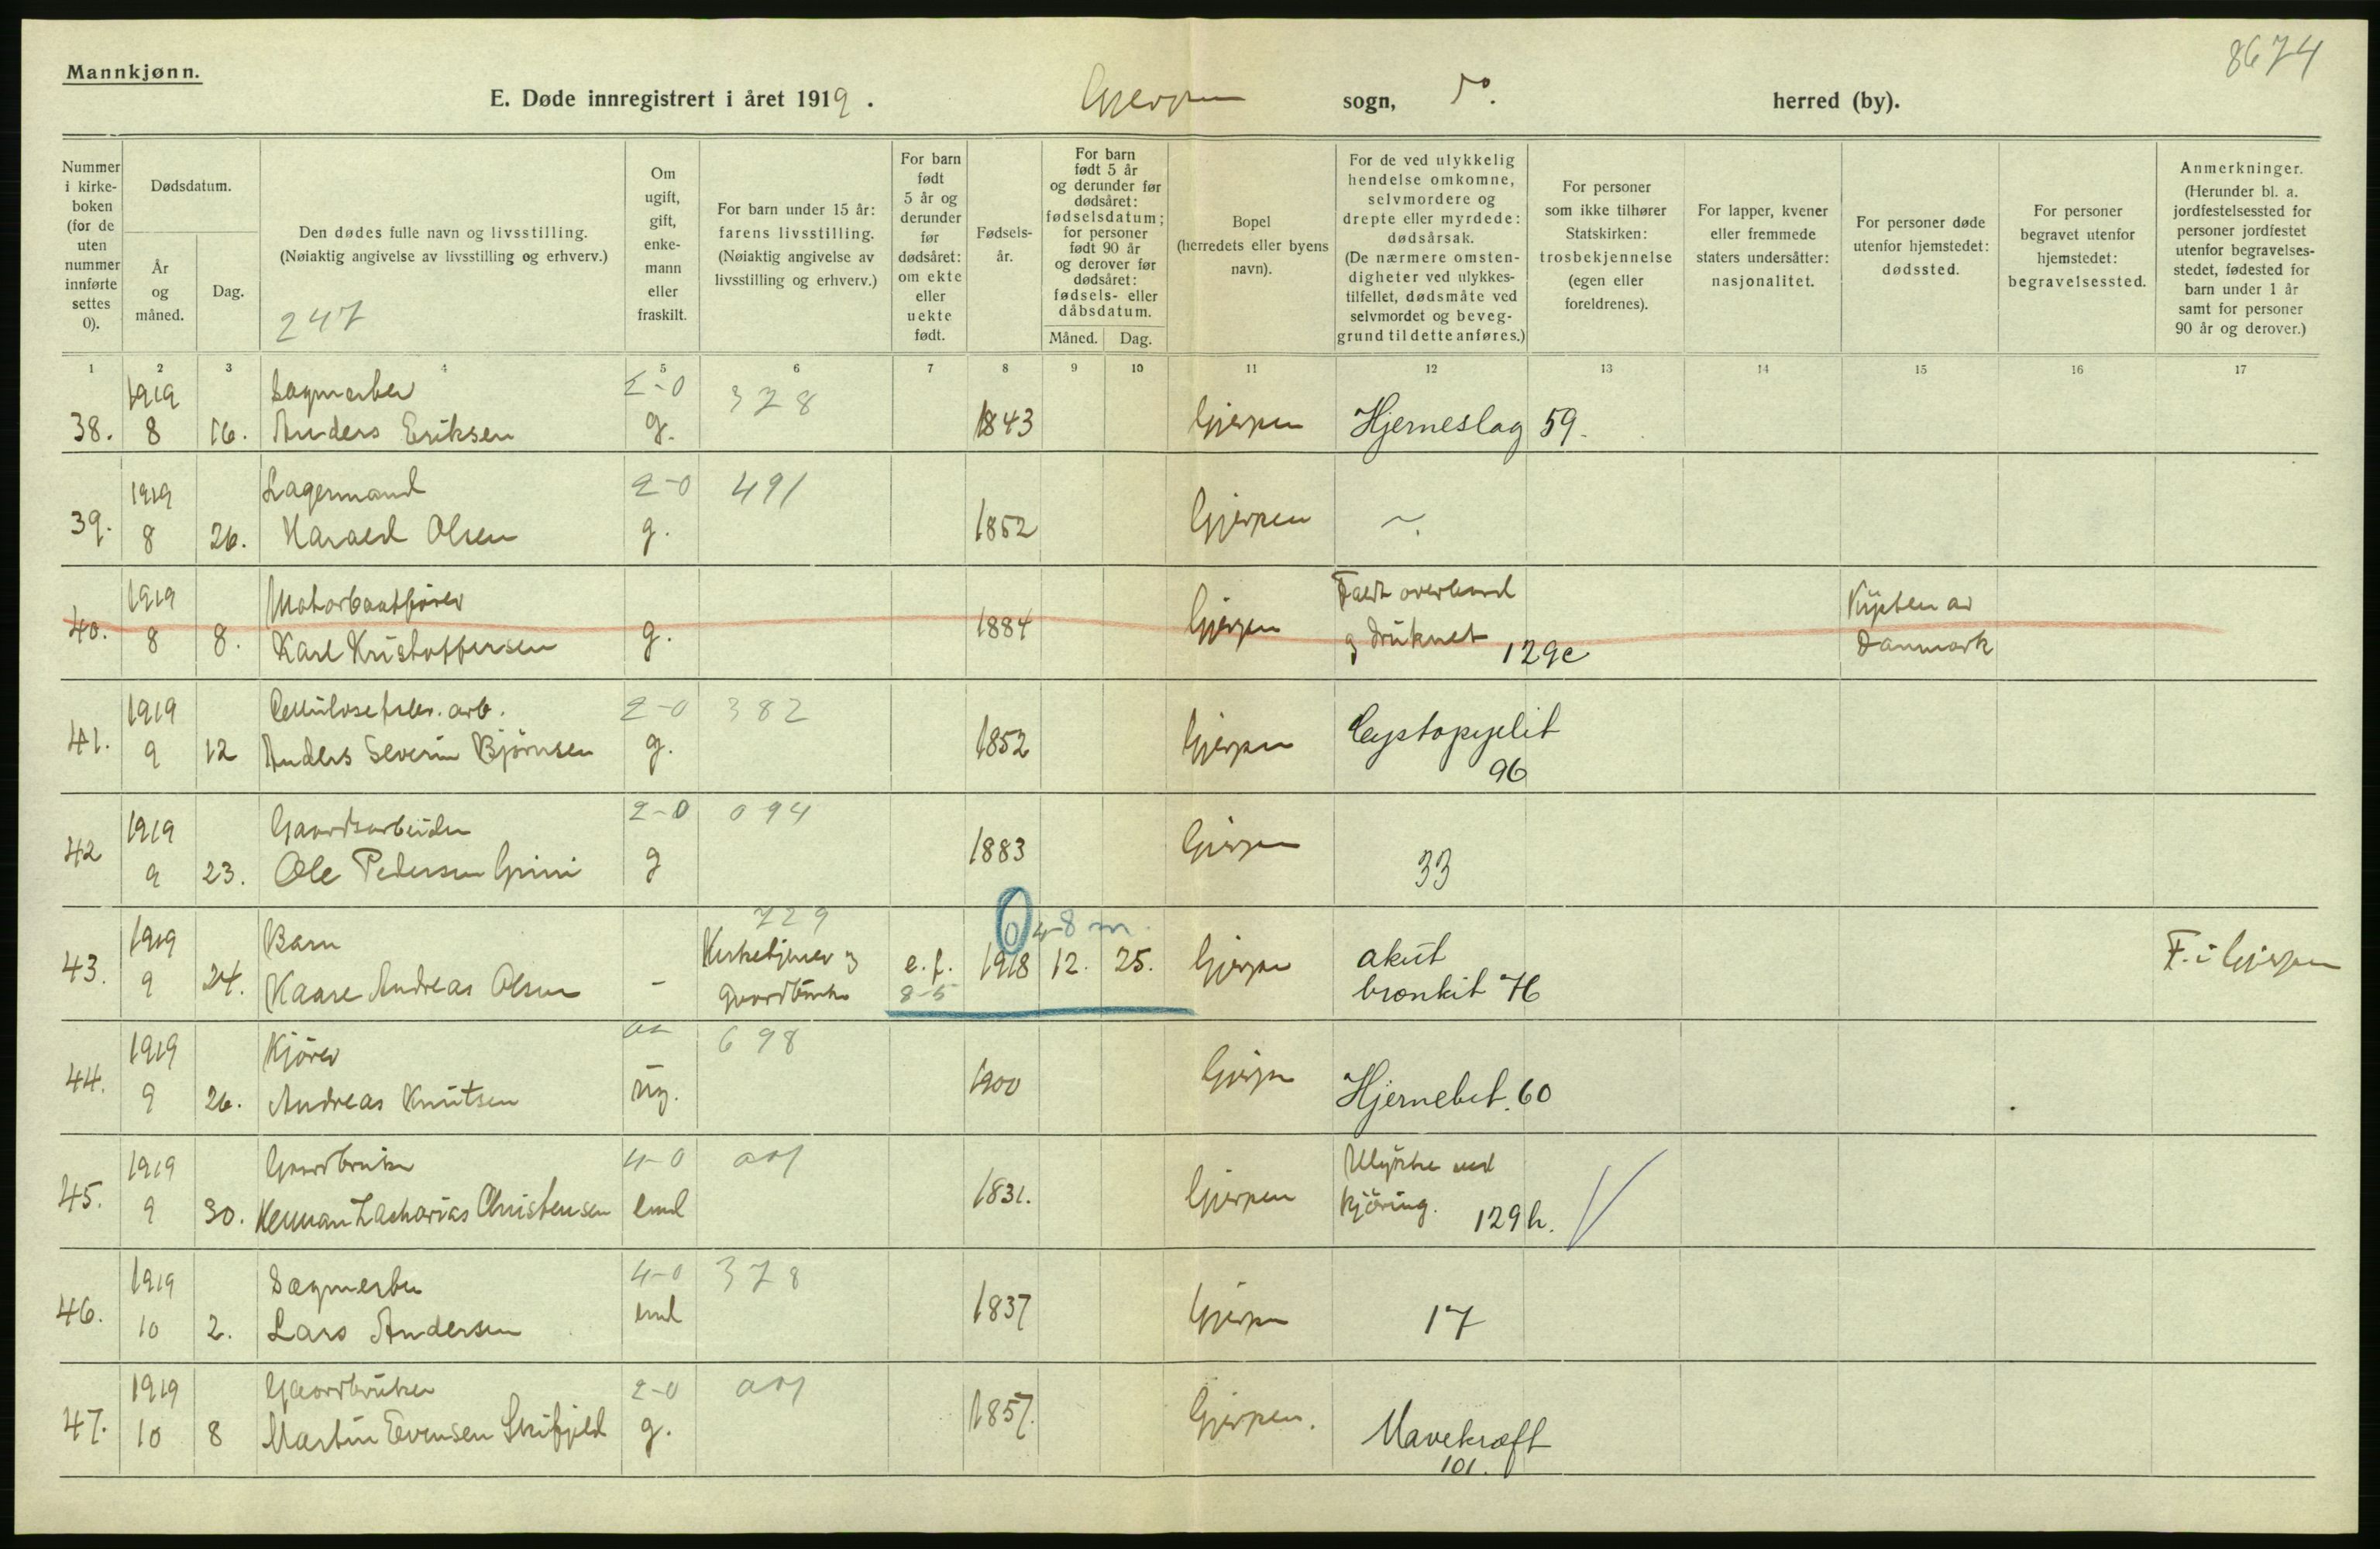 8674
Mannkjønn.
E. Døde innregistrert i året 1919. Gjerpen sogn, do. herred (by).
Nummer i kirke-boken (for de uten nummer innførte settes 0).
Dødsdatum.
År og måned.
Dag.
Den dødes fulle navn og livsstilling.
(Nøiaktig angivelse av livsstilling og erhverv.)
247
Om ugift, gift, enke-mann eller fraskilt.
For barn under 15 år: farens livsstilling. (Nøiaktig angivelse av livsstilling og erhverv.)
For barn født 5 år og derunder før dødsåret: om ekte eller uekte født.
Fødsels-år.
For barn født 5 år og derunder før dødsåret: fødselsdatum; for personer født 90 år og derover før dødsåret: fødsels- eller dåbsdatum.
Måned. Dag.
Bopel (herredets eller byens navn).
For de ved ulykkelig hendelse omkomne, selvmordere og drepte eller myrdede: dødsårsak. (De nærmere omsten-digheter ved ulykkes-tilfellet, dødsmåte ved selvmordet og beveg-grund til dette anføres.)
For personer som ikke tilhører Statskirken: trosbekjennelse (egen eller foreldrenes).
For lapper, kvener eller fremmede staters undersåtter: nasjonalitet.
For personer døde utenfor hjemstedet: dødssted.
For personer begravet utenfor hjemstedet: begravelsessted.
Anmerkninger. (Herunder bl. a. jordfestelsessted for personer jordfestet utenfor begravelses-stedet, fødested for barn under 1 år samt for personer 90 år og derover.)
1 2 3 4 5 6 7 8 9 10 11 12 13 14 15 16 17
1919 Sagmester 2-0 378
38. 8 16. Anders Eriksen g. 1843 Gjerpen Hjerneslag 59.
1919 Lagermand 2-0 491
39. 8 26. Harald Olsen g. 1852 Gjerpen ~.
1919 Motorbaatfører Faldt overbord
40. 8 8. Karl Kristoffersen g. 1884 Gjerpen og druknet 129e Kysten av Danmark
1919 Cellulosefabr. arb. 2-0 382
41. 9 12 Anders Severin Bjørnsen g. 1852 Gjerpen Cystopyelit 96
1919 Gaardsarbeider 2-0 094
42 9 23. Ole Pedersen Grini g 1883 Gjerpen 33
1919 Barn 729 0 4-8 m.
43. 9 24. Kaare Andreas Olsen - Kirketjener og gaardbruker e.f. 8-5 1918 12. 25. Gjerpen akut bronkit 76 F. i Gjerpen
1919 Kjører 698
44. 9 26. Andreas Knutsen ug. 1900 Gjerpen Hjernebet. 60
1919 Gaardbruker 4-0 001 Ulykke ved
45. 9 30. Herman Zacharias Christensen eml 1831. Gjerpen kjøring. 129h.
1919 Sagmester 4-0 378
46. 10 2. Lars Andersen eml 1837 Gjerpen 17
1919 Gaardbruker 2-0 001
47. 10 8 Martin Evensen Skifjeld g. 1857. Gjerpen. Mavekræft 101.